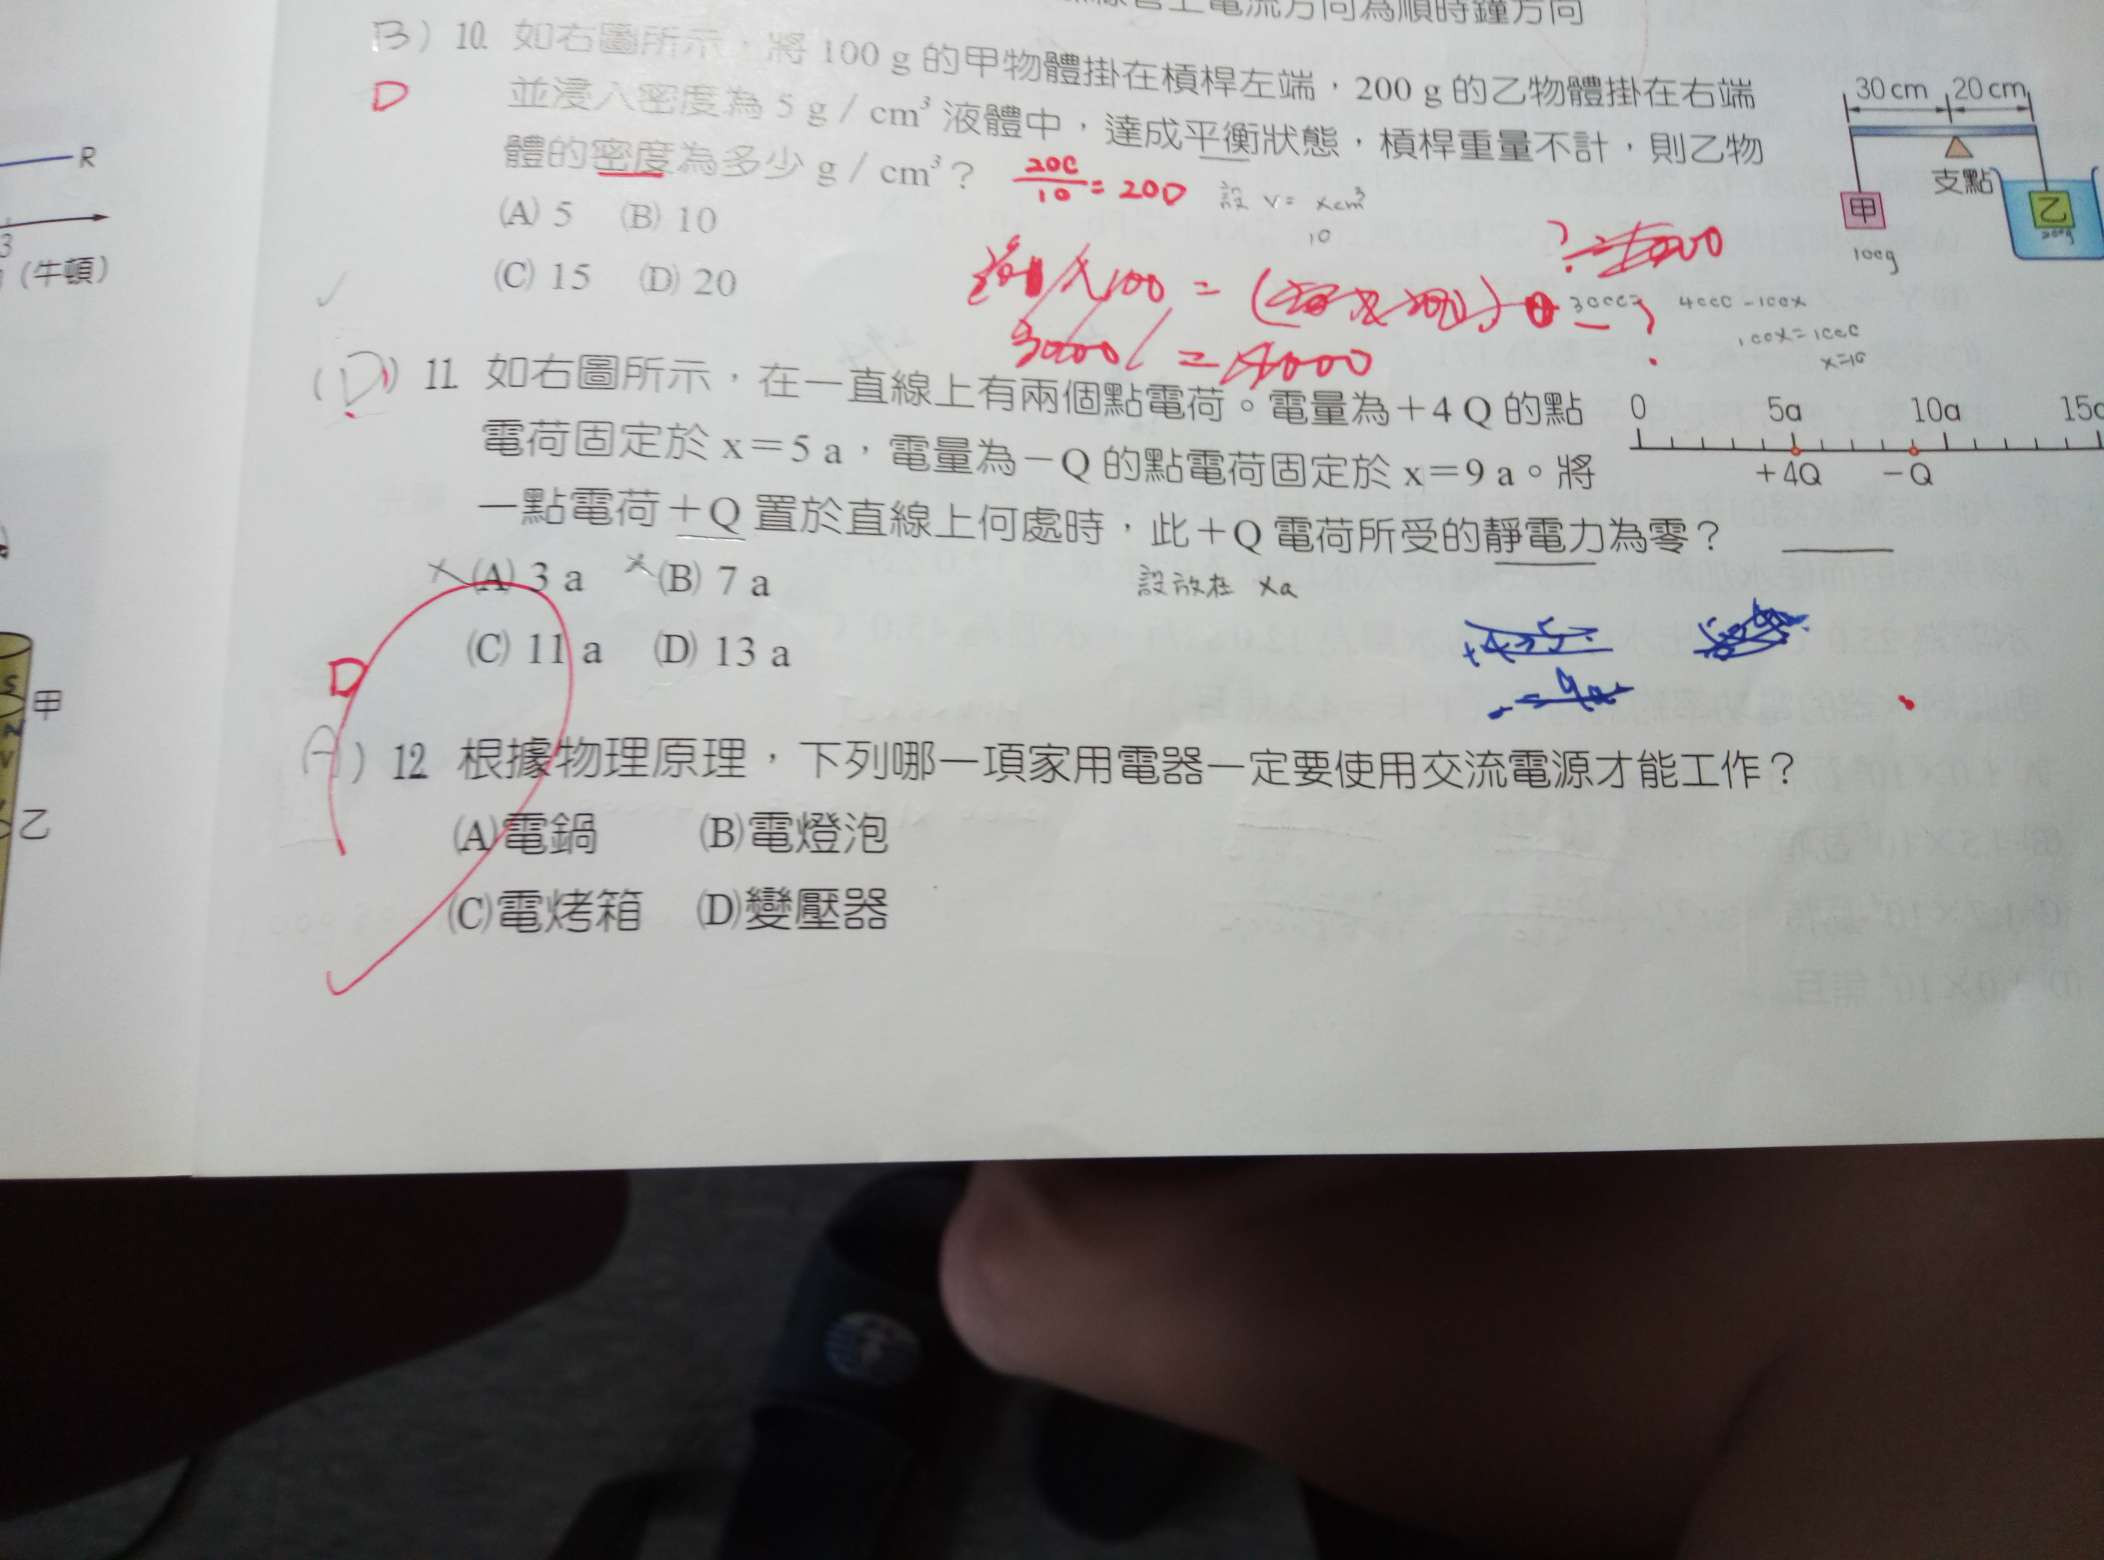 電流方向為順時鐘方向
B) 10. 如右圖所示，將 100 g 的甲物體掛在槓桿左端，200 g 的乙物體掛在右端
D
並浸入密度為 5 g / cm³ 液體中，達成平衡狀態，槓桿重量不計，則乙物
體的密度為多少 g / cm³？
200/10 = 20D
設 V = xcm³
10
(A) 5 (B) 10
(C) 15 (D) 20
30 cm 20 cm
支點
甲
乙
200g
100g
x100 = (
3000 = 4000
3000= 4000-100x
100x=1000
x=10
(D) 11. 如右圖所示，在一直線上有兩個點電荷。電量為＋4 Q 的點
電荷固定於 x＝5 a，電量為－Q 的點電荷固定於 x＝9 a。將
一點電荷＋Q 置於直線上何處時，此＋Q 電荷所受的靜電力為零？
0 5a 10a 15a
+4Q －Q
(A) 3 a (B) 7 a
設放在 xa
(C) 11 a (D) 13 a
D
A) 12. 根據物理原理，下列哪一項家用電器一定要使用交流電源才能工作？
(A)電鍋 (B)電燈泡
(C)電烤箱 (D)變壓器
R
3
(牛頓)
S
甲
N
乙